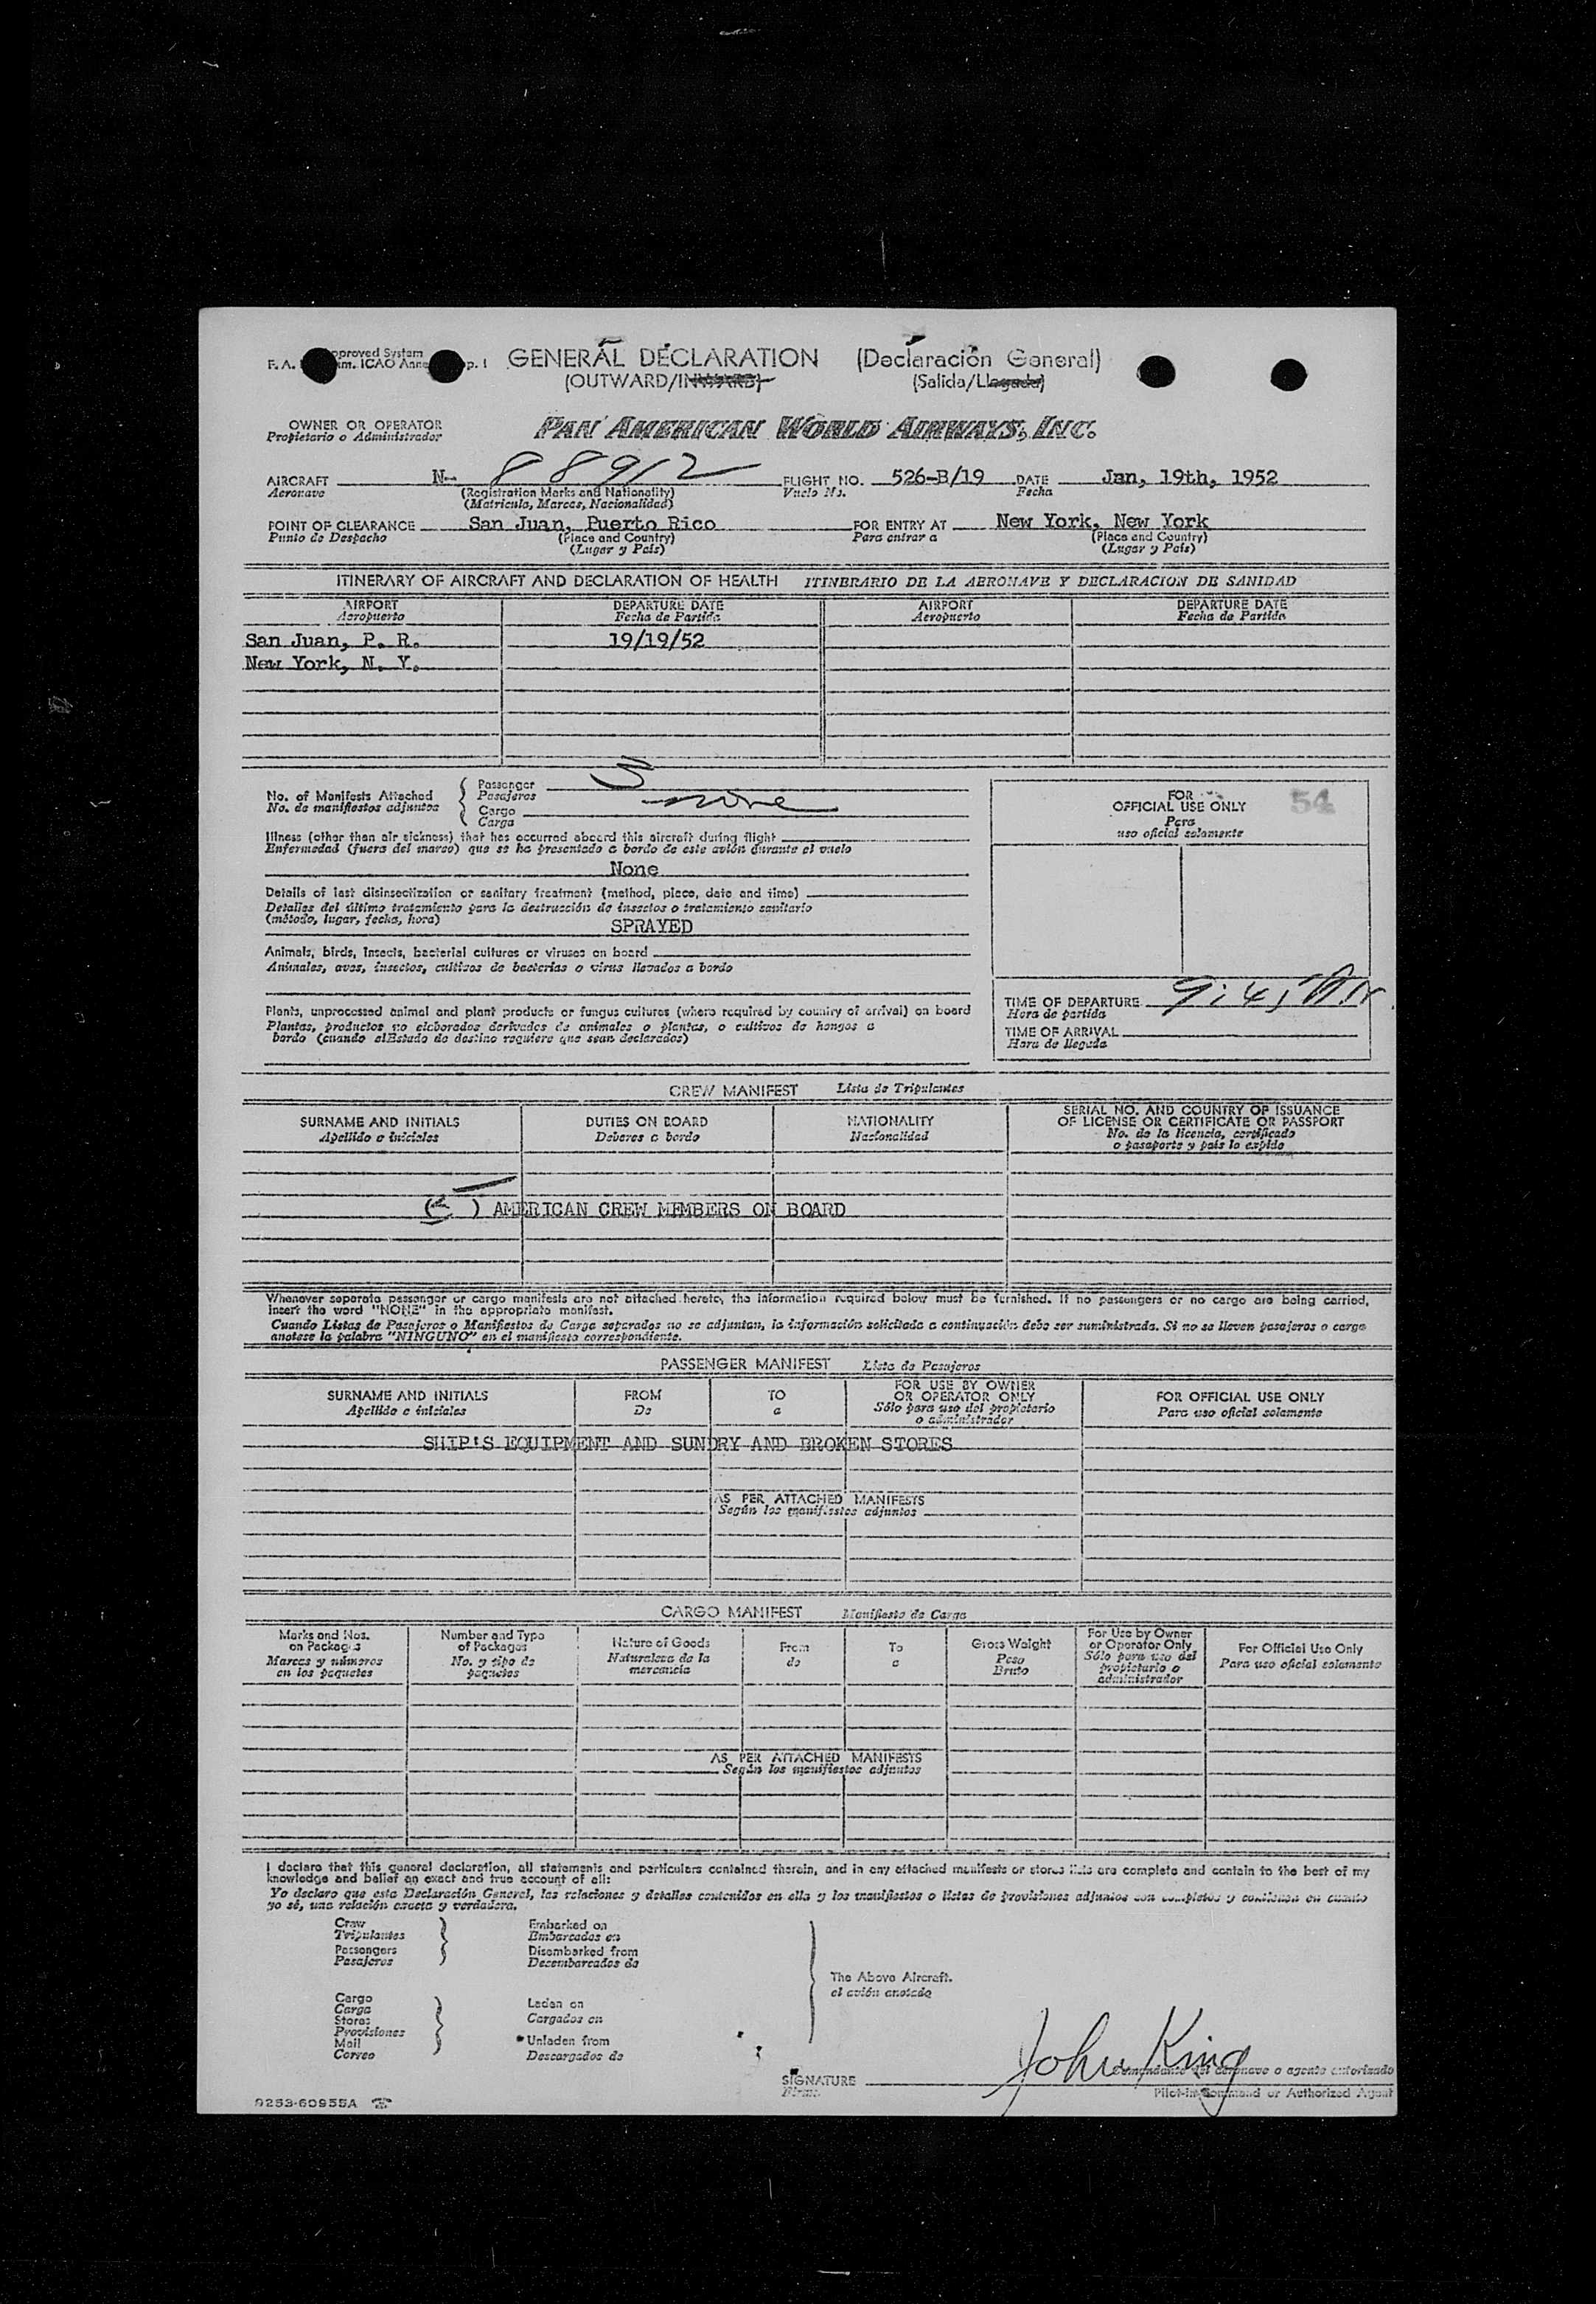 GENERAL DECLARATION (Declaración General)
(OUTWARD/INWARD) (Salida/Llegada)
OWNER OR OPERATOR
Propietario o Administrador
PAN AMERICAN WORLD AIRWAYS, INC.
AIRCRAFT N- 88912 FLIGHT NO. 526-B/19 DATE Jan, 19th, 1952
Aeronave (Registration Marks and Nationality) Vuelo No. Fecha
(Matricula, Marcas, Nacionalidad)
POINT OF CLEARANCE San Juan, Puerto Rico FOR ENTRY AT New York, New York
Punto de Despacho (Place and Country) Para entrar a (Place and Country)
(Lugar y País) (Lugar y País)
ITINERARY OF AIRCRAFT AND DECLARATION OF HEALTH ITINERARIO DE LA AERONAVE Y DECLARACION DE SANIDAD
AIRPORT DEPARTURE DATE AIRPORT DEPARTURE DATE
Aeropuerto Fecha de Partida Aeropuerto Fecha de Partida
San Juan, P. R. 19/19/52
New York, N. Y.
No. of Manifests Attached
No. de manifiestos adjuntos
Passenger
Pasajeros
Cargo none
Carga
FOR
OFFICIAL USE ONLY
Para
uso oficial solamente
54
Illness (other than air sickness) that has occurred aboard this aircraft during flight
Enfermedad (fuera del mareo) que se ha presentado a bordo de este avión durante el vuelo
None
Details of last disinsectization or sanitary treatment (method, place, date and time)
Detalles del último tratamiento para la destrucción de insectos o tratamiento sanitario
(método, lugar, fecha, hora)
SPRAYED
Animals, birds, insects, bacterial cultures or viruses on board
Animales, aves, insectos, cultivos de bacterias o virus llevados a bordo
Plants, unprocessed animal and plant products or fungus cultures (where required by country of arrival) on board
Plantas, productos no elaborados derivados de animales o plantas, o cultivos de hongos a
bordo (cuando el Estado de destino requiere que sean declarados)
TIME OF DEPARTURE 9:45
Hora de partida
TIME OF ARRIVAL
Hora de llegada
CREW MANIFEST Lista de Tripulantes
SURNAME AND INITIALS DUTIES ON BOARD NATIONALITY SERIAL NO. AND COUNTRY OF ISSUANCE
Apellido e iniciales Deberes a bordo Nacionalidad OF LICENSE OR CERTIFICATE OR PASSPORT
No. de la licencia, certificado
o pasaporte y país lo expide
( ) AMERICAN CREW MEMBERS ON BOARD
Whenever separate passenger or cargo manifests are not attached hereto, the information required below must be furnished. If no passengers or no cargo are being carried,
insert the word "NONE" in the appropriate manifest.
Cuando Listas de Pasajeros o Manifiestos de Carga separados no se adjuntan, la información solicitada a continuación debe ser suministrada. Si no se lleven pasajeros o carga
anotese la palabra "NINGUNO" en el manifiesto correspondiente.
PASSENGER MANIFEST Lista de Pasajeros
SURNAME AND INITIALS FROM TO FOR USE BY OWNER OR OPERATOR ONLY FOR OFFICIAL USE ONLY
Apellido e iniciales De a Sólo para uso del propietario o administrador Para uso oficial solamente
SHIP'S EQUIPMENT AND SUNDRY AND BROKEN STORES
AS PER ATTACHED MANIFESTS
Según los manifiestos adjuntos
CARGO MANIFEST Manifiesto de Carga
Marks and Nos. on Packages Number and Type of Packages Nature of Goods From To Gross Weight For Use by Owner or Operator Only For Official Use Only
Marcas y números en los paquetes No. y tipo de paquetes Naturaleza de la mercancia de a Peso Bruto Sólo para uso del propietario o administrador Para uso oficial solamente
AS PER ATTACHED MANIFESTS
Según los manifiestos adjuntos
I declare that this general declaration, all statements and particulars contained therein, and in any attached manifests or stores lists are complete and contain to the best of my
knowledge and belief an exact and true account of all:
Yo declaro que esta Declaración General, las relaciones y detalles contenidos en ella y los manifiestos o listas de provisiones adjuntos son completos y contienen en cuanto
yo sé, una relación exacta y verdadera.
Crew Embarked on
Tripulantes Embarcados en
Passengers Disembarked from
Pasajeros Desembarcados de
The Above Aircraft.
el avión anotado
Cargo Laden on
Carga Cargados en
Stores
Provisiones
Mail Unladen from
Correo Descargados de
John King
SIGNATURE
Firma.
Comandante del aeronave o agente autorizado
Pilot-in-Command or Authorized Agent
9253-60955A